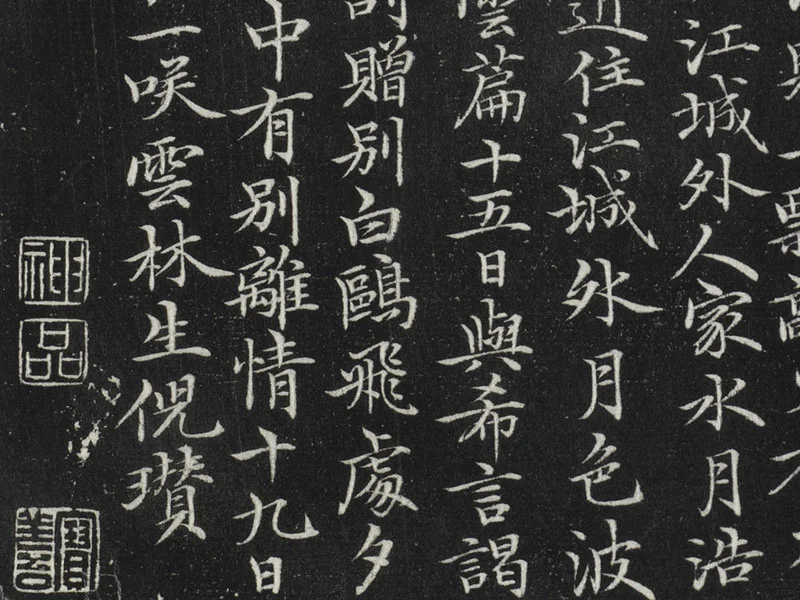 江城外人家水月浩
近住江城外月色波
雲萹十五日與希言謁
贈別白鷗飛處夕
中有別離情十九日
一咲雲林生倪瓚
神品